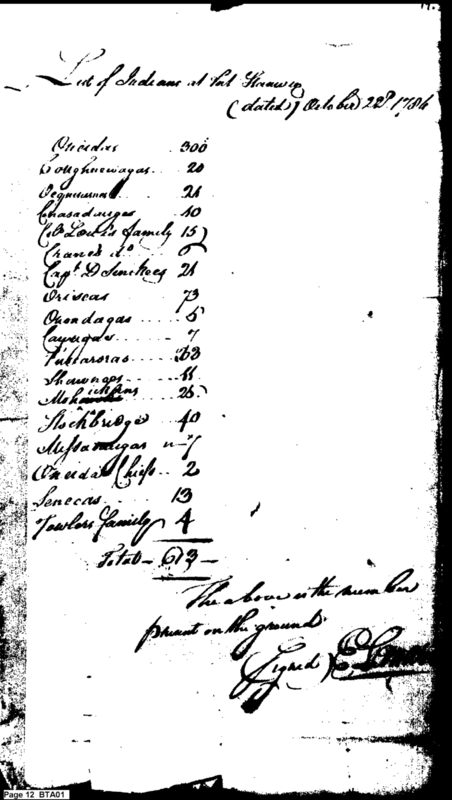 List of Indians at Fort
(dated) October 22d 1784
Oneidas 300
20
21
10
Col. Louis family 15
do 6
Capt. D 21
Oriscas 73
Onondagas 5
Cayugas 7
Tuscaroras 33
11
25
Stockbridge 40
Messasaugas 7
Oneida Chiefs 2
Senecas 13
Fowlers family 4
Total 613
The above is the number
present on the ground
(Signed)
Page 12 BTA01